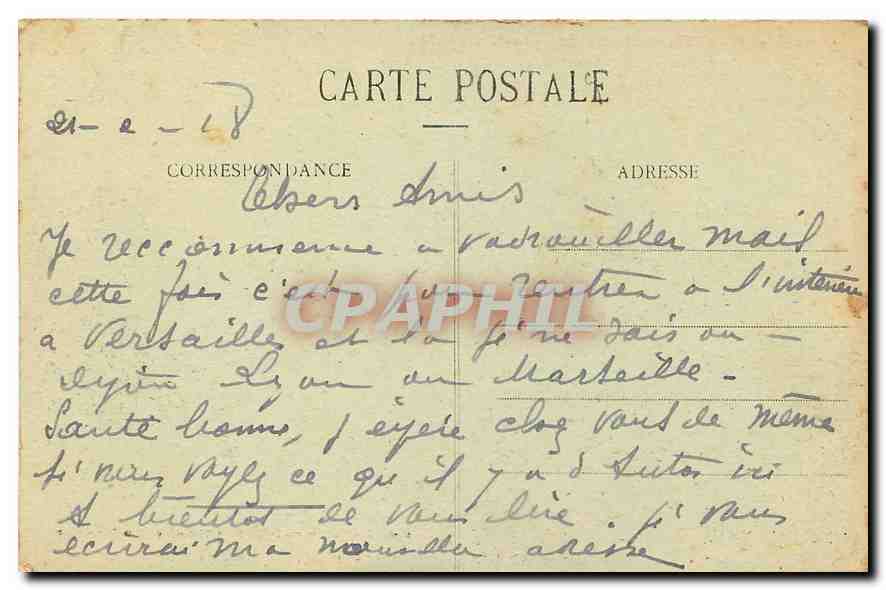 CARTE POSTALE
21-2-18
CORRESPONDANCE
ADRESSE
Chers Amis
Je recommence a vadrouiller mais
cette fois c'est pour rentrer a l'interieur
a Versailles et la je ne sais ou -
Lyon ou Marseille -
Santé bonne, j'espère chez vous de même
si vous voyez ce qu'il y a d'autos ici
A bientot de vous lire. je vous
ecrirai ma nouvelle adresse
CPAPHIL